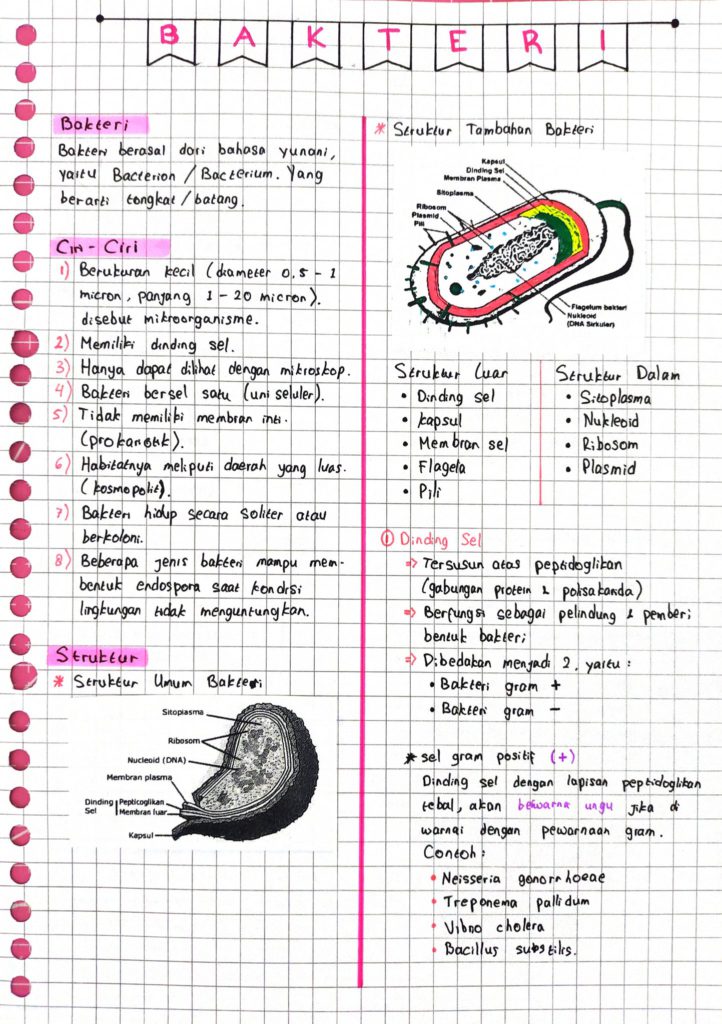 BAKTERI
Bakteri
Bakteri berasal dari bahasa yunani,
yaitu Bacterion / Bacterium. Yang
berarti tongkat / batang.
Ciri - Ciri
1) Berukuran kecil (diameter 0,5 - 1
micron, panjang 1 - 20 micron).
disebut mikroorganisme.
2) Memiliki dinding sel.
3) Hanya dapat dilihat dengan mikroskop.
4) Bakteri bersel satu (uni seluler).
5) Tidak memiliki membran inti.
(prokariotik).
6) Habitatnya meliputi daerah yang luas.
(kosmopolit).
7) Bakteri hidup secara soliter atau
berkoloni.
8) Beberapa jenis bakteri mampu mem-
bentuk endospora saat kondisi
lingkungan tidak menguntungkan.
Struktur
* Struktur Umum Bakteri
Sitoplasma
Ribosom
Nucleoid (DNA)
Membran plasma
Dinding Sel
Pepticoglikan
Membran luar
Kapsul
* Struktur Tambahan Bakteri
Kapsul
Dinding Sel
Membran Plasma
Sitoplasma
Ribosom
Plasmid
Pili
Flagelum bakteri
Nukleoid
(DNA Sirkular)
Struktur Luar
• Dinding sel
• kapsul
• Membran sel
• Flagela
• Pili
Struktur Dalam
• Sitoplasma
• Nukleoid
• Ribosom
• Plasmid
① Dinding Sel
⇒ Tersusun atas peptidoglikan
(gabungan protein & polisakarida)
⇒ Berfungsi sebagai pelindung & pemberi
bentuk bakteri
⇒ Dibedakan menjadi 2, yaitu :
• Bakteri gram +
• Bakteri gram -
* sel gram positif (+)
Dinding sel dengan lapisan peptidoglikan
tebal, akan bewarna ungu jika di
warnai dengan pewarnaan gram.
Contoh :
• Neisseria gonorrhoeae
• Treponema pallidum
• Vibrio cholera
• Bacillus substilis.